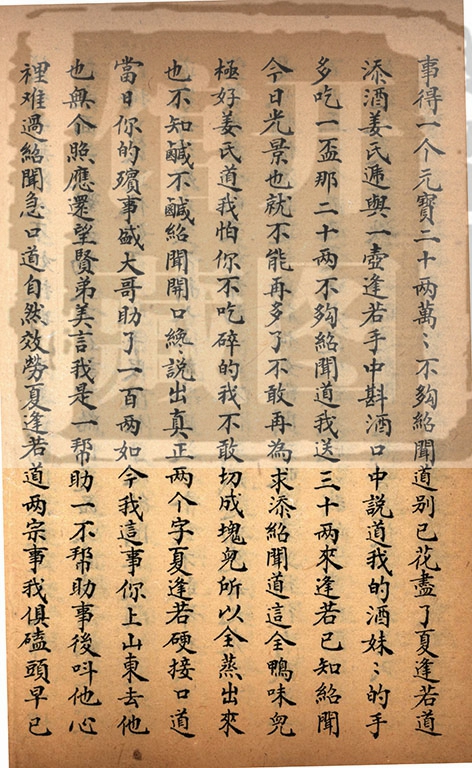 事得一个元寳二十两萬〻不夠紹聞道别已花盡了夏逢若道
添酒姜氏逓與一壺逢若手中斟酒口中説道我的酒妹〻的手
多吃一盃那二十两不夠紹聞道我送三十两來逢若已知紹聞
今日光景也就不能再多了不敢再為求添紹聞道這全鴨味兒
極好姜氏道我怕你不吃碎的我不敢切成塊兒所以全蒸出來
也不知鹹不鹹紹聞開口纔説出真正两个字夏逢若硬接口道
當日你的殯事盛大哥助了一百两如今我這事你上山東去他
也無个照應還望賢弟美言我是一帮助一不帮助事後呌他心
裡难過紹聞急口道自然效勞夏逢若道两宗事我俱磕頭早已